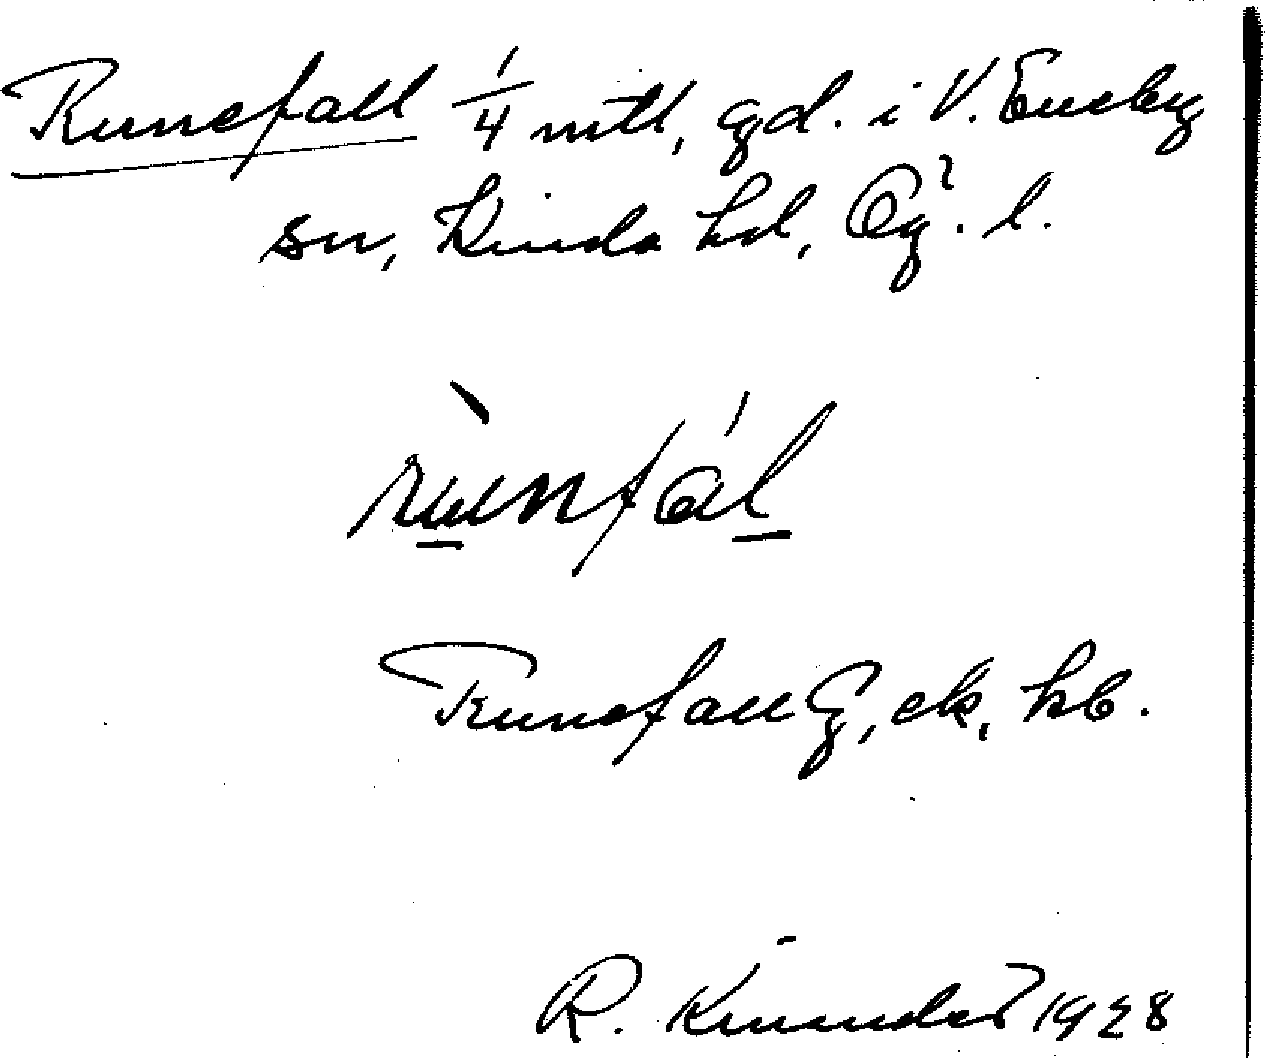 Runefall 1/4 mtl, gd. i V. Eneby
sn, Kinda hd, Ög. l.
rùnfál
Runefall G, ek, kb.
R. 1928